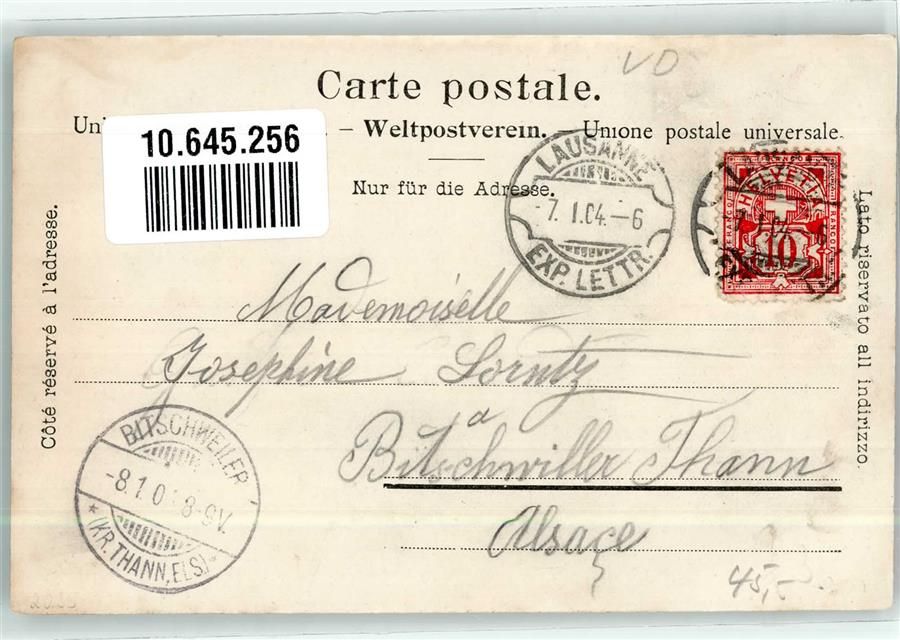 VD
Carte postale.
10.645.256
– Weltpostverein. – Unione postale universale.
Nur für die Adresse.
LAUSANNE
7. I. 04. – 6
EXP. LETTR.
HELVETIA
FRANCO FRANCO
10
Côté réservé à l'adresse.
Lato riservato all indirizzo.
Mademoiselle
Josephine Lorntz
à
Bitschwiller Thann
Alsace
BITSCHWEILER
-8.1.0 8-9V.
* (KR. THANN, ELS.) *
45,-